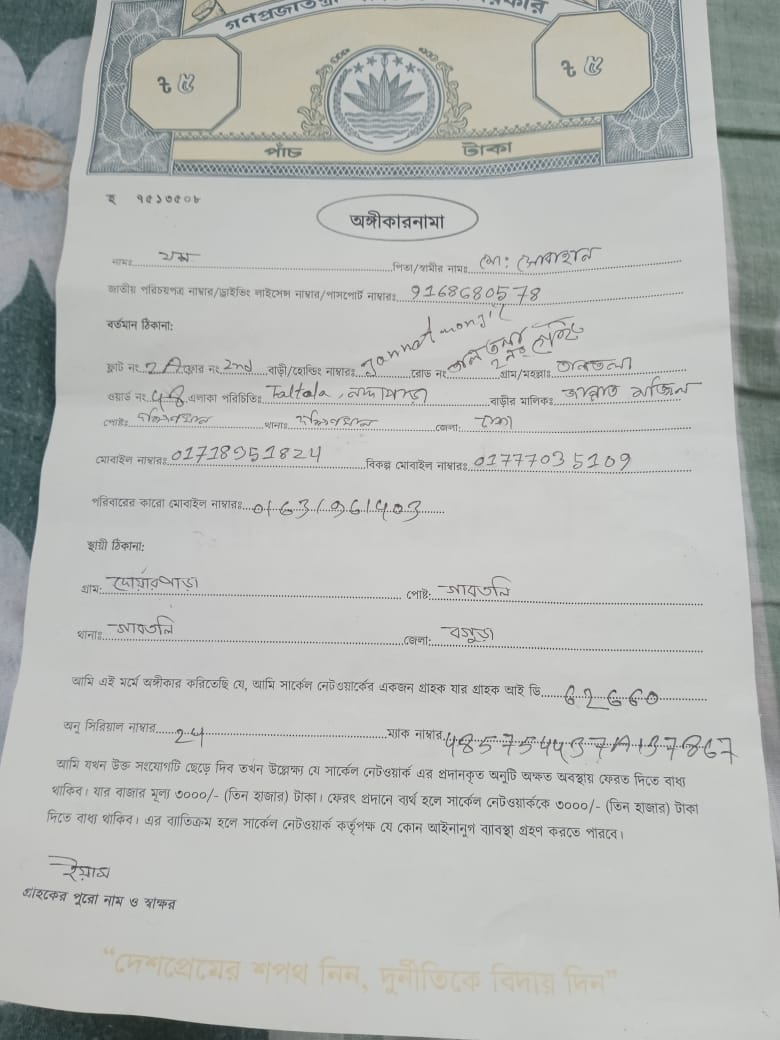 গণপ্রজাতন্ত্রী
৳ ৫
৳ ৫
পাঁচ টাকা
হ ৭৫১৩৫০৮
অঙ্গীকারনামা
নামঃ পিতা/স্বামীর নামঃ মো: সোবাহান
জাতীয় পরিচয়পত্র নাম্বার/ড্রাইভিং লাইসেন্স নাম্বার/পাসপোর্ট নাম্বারঃ 9168680578
বর্তমান ঠিকানা:
ফ্লাট নং 2A ফ্লোর নং 2nd বাড়ী/হোল্ডিং নাম্বারঃ Jannat monjil রোড নং তালতলা ২ নং গ্রাম/মহল্লাঃ তালতলা
ওয়ার্ড নং 48 এলাকা পরিচিতিঃ Taltola, বাড়ীর মালিকঃ জান্নাত মঞ্জিল
পোষ্টঃ দক্ষিণখান থানাঃ দক্ষিণখান জেলা: ঢাকা
মোবাইল নাম্বারঃ 01718951824 বিকল্প মোবাইল নাম্বারঃ 01777035109
পরিবারের কারো মোবাইল নাম্বারঃ 01631961403
স্থায়ী ঠিকানা:
গ্রাম: দোয়ারপাড়া পোষ্ট: গাবতলি
থানাঃ গাবতলি জেলা: বগুড়া
আমি এই মর্মে অঙ্গীকার করিতেছি যে, আমি সার্কেল নেটওয়ার্কের একজন গ্রাহক যার গ্রাহক আই ডি 62660
অনু সিরিয়াল নাম্বার 24 ম্যাক নাম্বার
আমি যখন উক্ত সংযোগটি ছেড়ে দিব তখন উল্লেক্ষ্য যে সার্কেল নেটওয়ার্ক এর প্রদানকৃত অনুটি অক্ষত অবস্থায় ফেরত দিতে বাধ্য
থাকিব। যার বাজার মূল্য ৩০০০/- (তিন হাজার) টাকা। ফেরৎ প্রদানে ব্যর্থ হলে সার্কেল নেটওয়ার্ককে ৩০০০/- (তিন হাজার) টাকা
দিতে বাধ্য থাকিব। এর ব্যাতিক্রম হলে সার্কেল নেটওয়ার্ক কর্তৃপক্ষ যে কোন আইনানুগ ব্যাবস্থা গ্রহণ করতে পারবে।
গ্রাহকের পুরো নাম ও স্বাক্ষর
“দেশপ্রেমের শপথ নিন, দুর্নীতিকে বিদায় দিন”